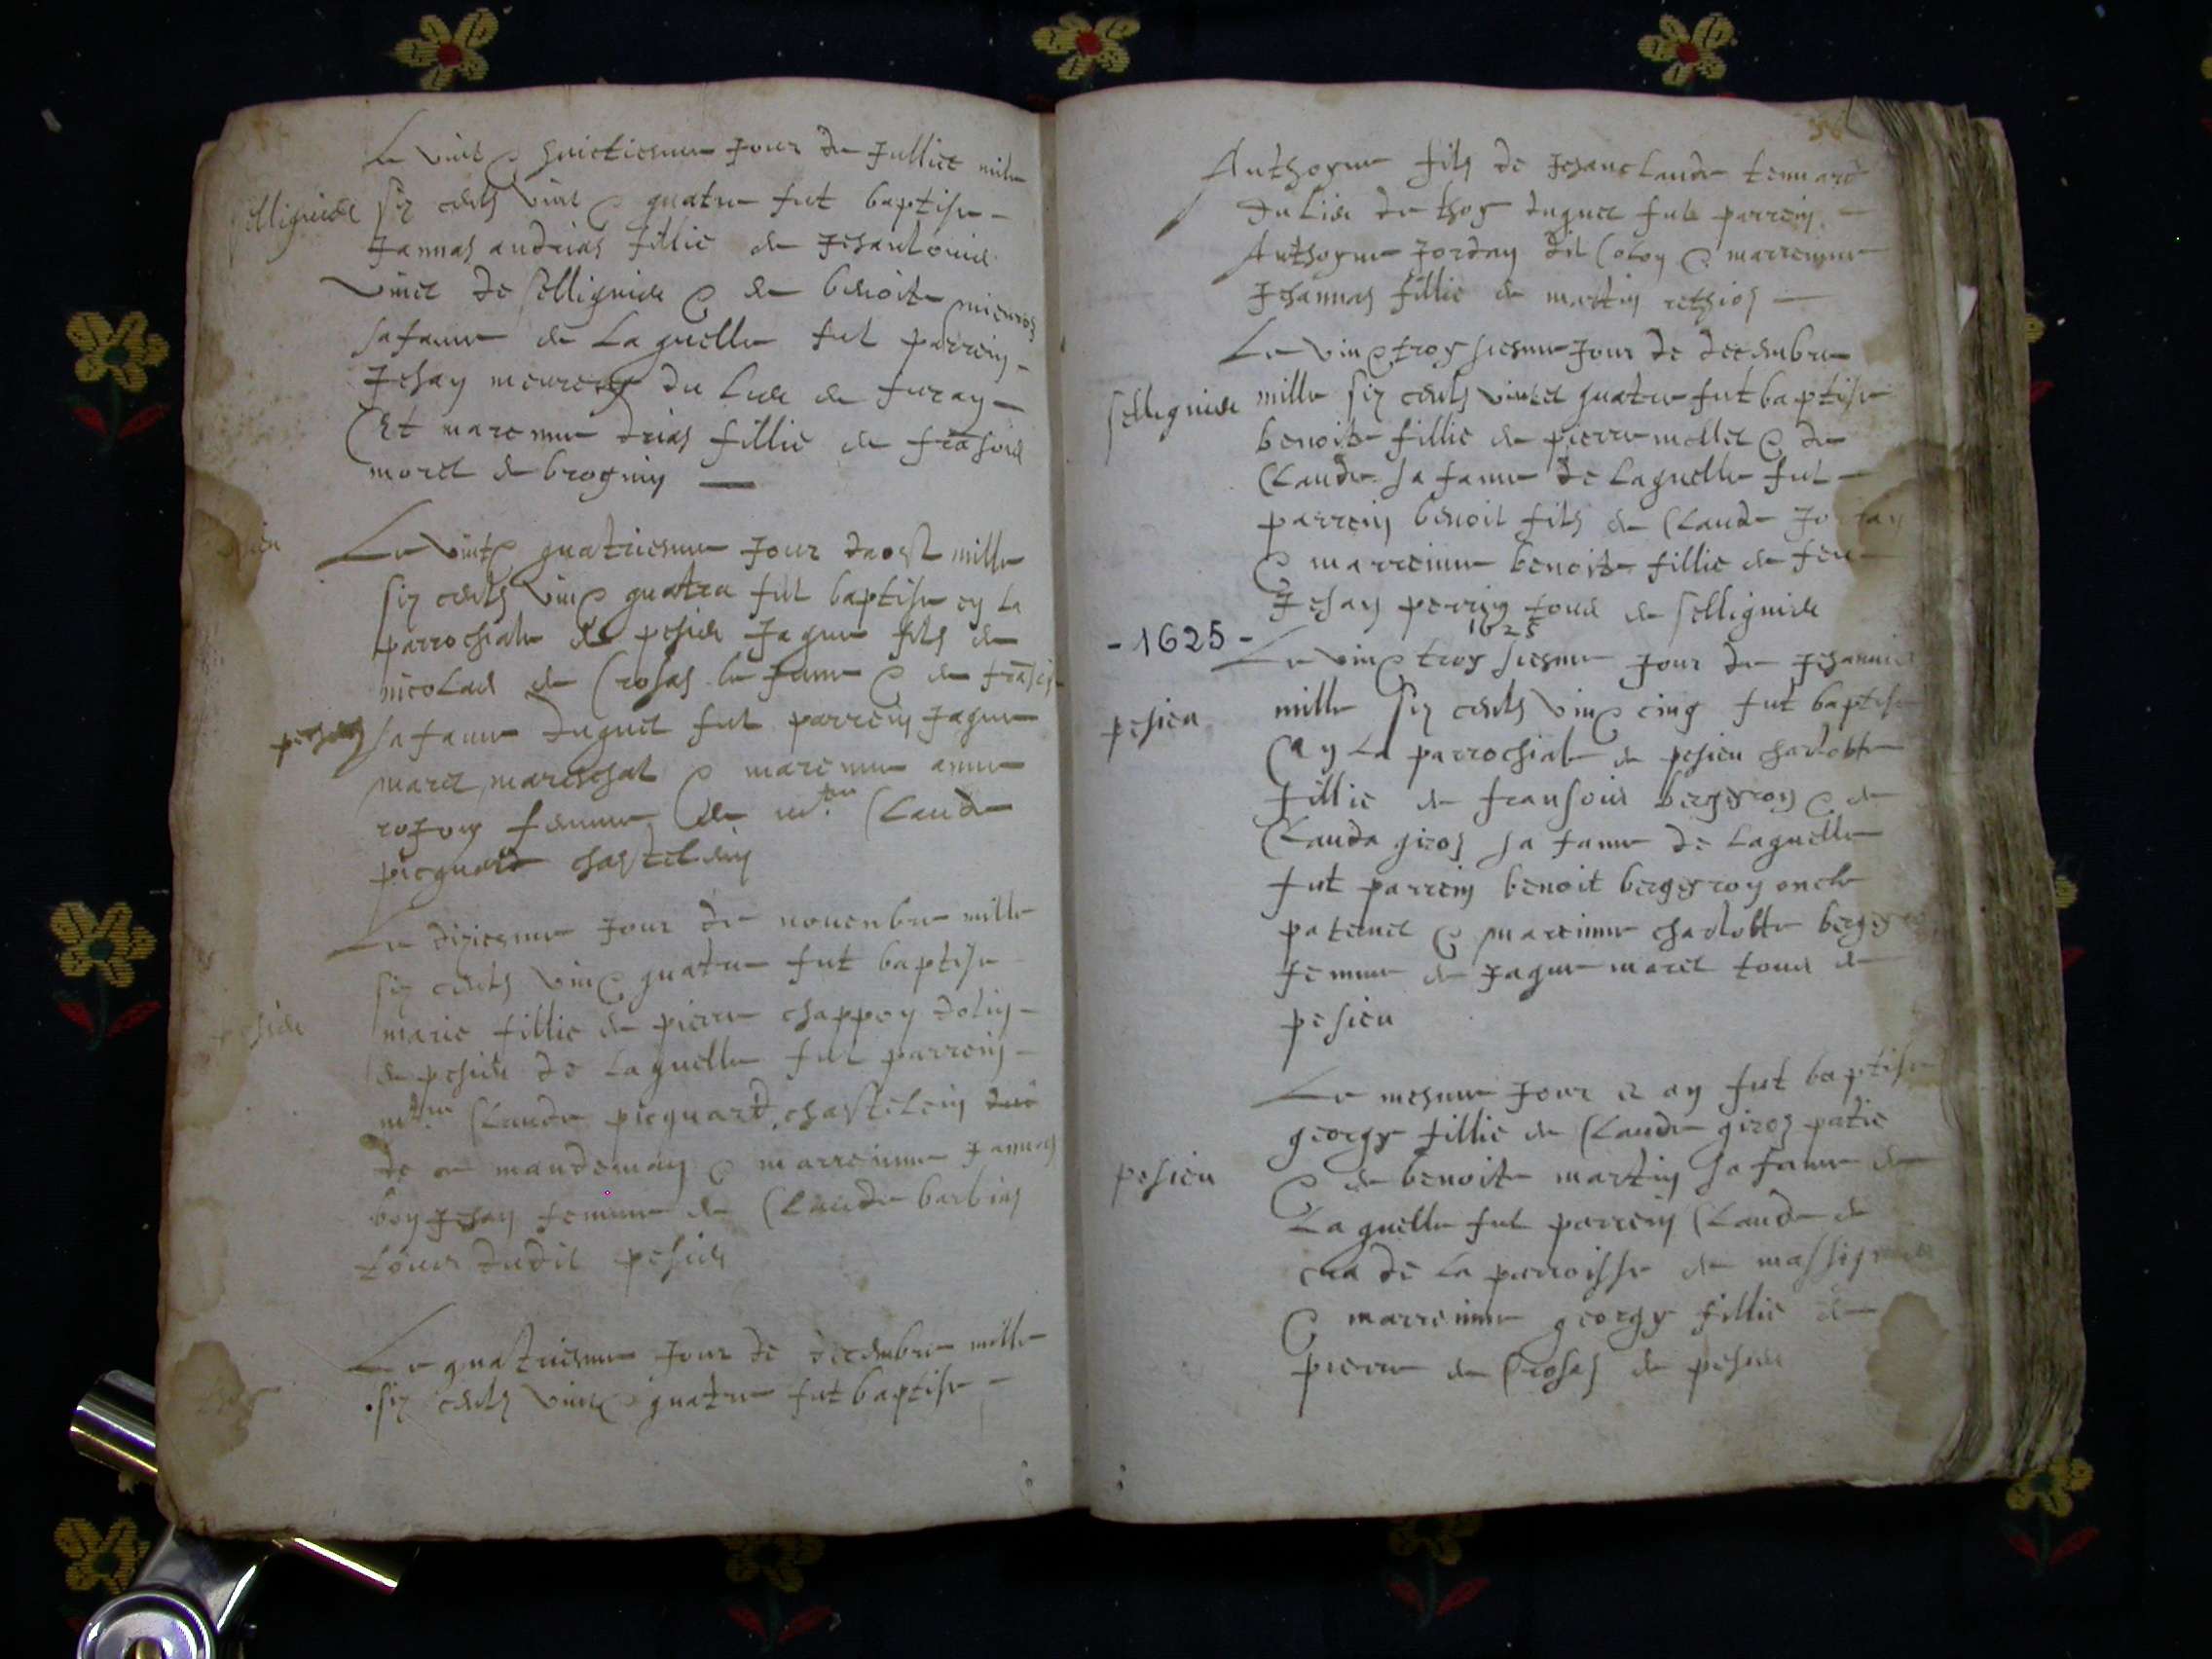 Le vint & huictiesme Jour de Julliet mille
sellignieu
six cents vint & quatre fut baptise
Jannas andrias fillie de Jehan louis
vinet de sellignieu & de benoite
sa fame de Laquelle fut parrein
Jehan du Lieu de furay
Et marenne drias fillie de frãsois
moret de brognin
Le vint & quatriesme Jour daost mille
six cents vint & quatre fut baptise en la
parrochiale de pesieu Jaqme fils de
nicolas de Crosas le Jeune & de
sa fame duquel fut parrein Jaqme
maret mareschal & marenne anne
femme de mtre Claude
picquard chastelein
Le dixiesme Jour de novenbre mille
six cents vint & quatre fut baptise
pesieu
marie fillie de pierre chappon dolin
de pesieu de Laquelle fut parrein
mtre Claude picquard, chastelein
de ce mandeman & marreinne Jannas
bon Jehan femme de Claude barbin
tous dudit pesieu
Le quatriesme Jour de decembre mille
six cents vint & quatre fut baptise
Anthoyne fils de Jehanclaude tennard
du Lieu de thoy duquel fut parrein
Anthoyne Jordan dit Coton & marreinne
Jehannas fillie de martin
Le vint & troysiesme Jour de decembre
sellignieu
mille six cents vint et quatre fut baptise
benoite fillie de pierre mollet & de
Claude sa fame de Laquelle fut
parrein benoit fils de Claude Jordan
& marreinne benoite fillie de feu
Jehan perrin tous de sellignieu
1625
- 1625 -
Le vint & troysiesme Jour de Jehanvie
pesieu
mille six cents vint & cinq fut baptise
En La parrochiale de pesieu charlotte
fillie de fransois bergeron & de
Clauda giros sa fame de Laquelle
fut parrein benoit bergeron oncle
paternel & mareinne charlotte
femme de Jaqme maret tous de
pesieu
Le mesme Jour et an fut baptise
georgy fillie de Claude giros patie
pesieu
& de benoite martin sa fame de
Laquelle fut parrein Claude de
cua de la parroisse de massignieu
& marreinne georgy fillie de
pierre de Crosas de pesieu